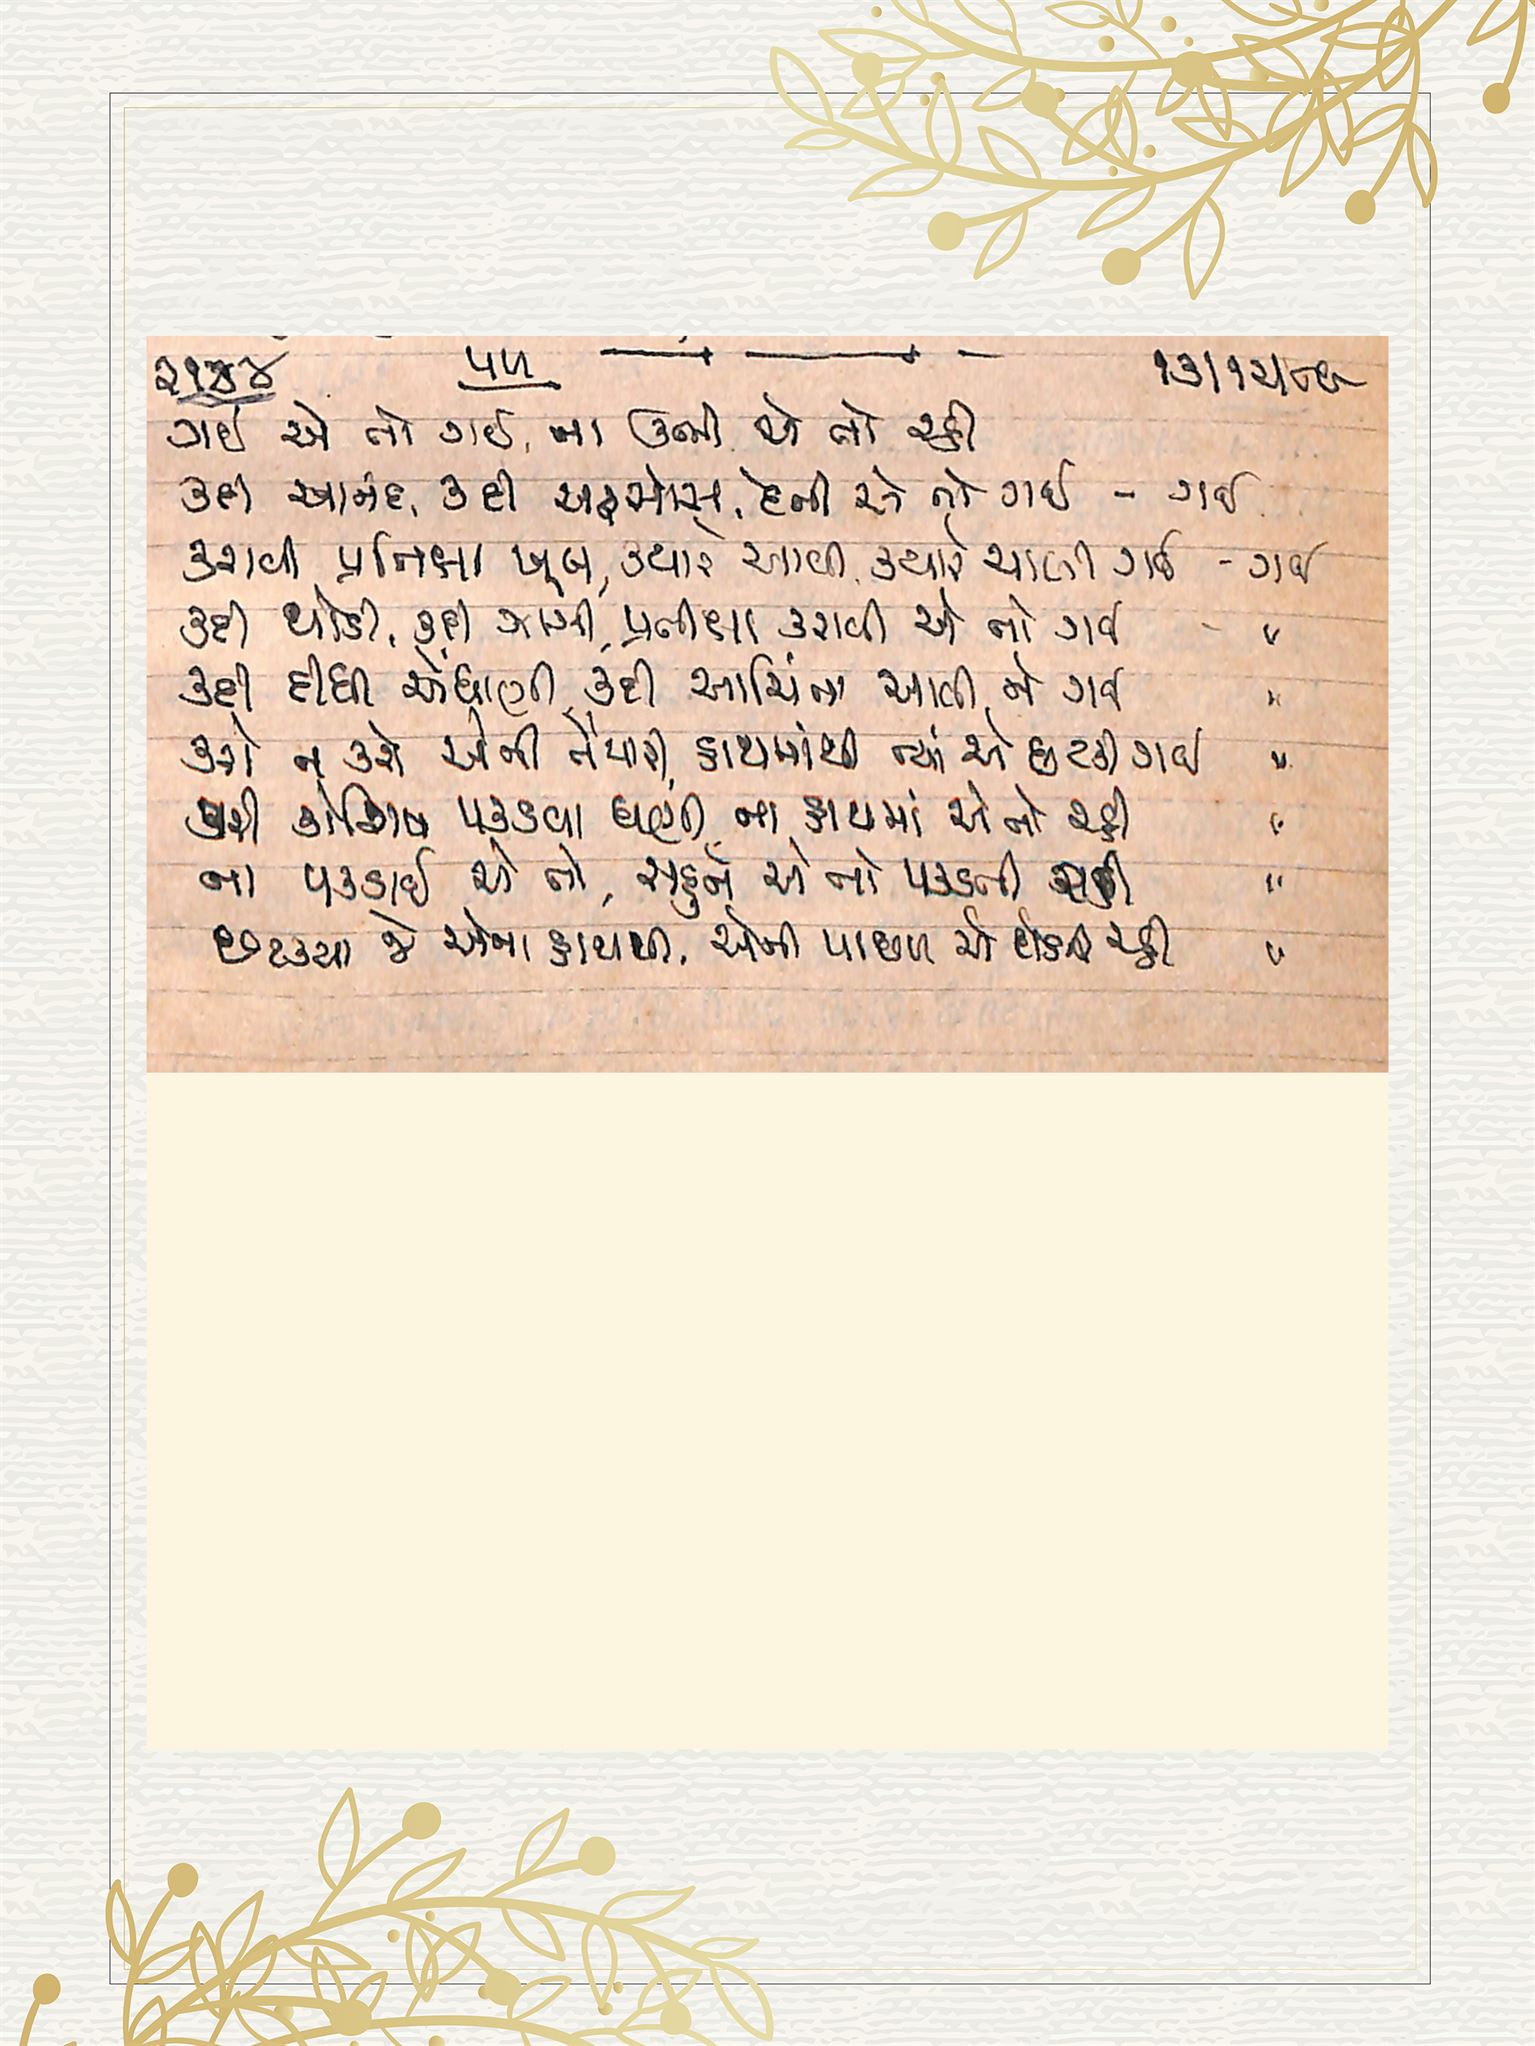 ૨૧૪૪ પળ ૧૩/૧૨/૮૯
ગઈ એ તો ગઈ, ના ઉભી એ તો રહી
કદી આનંદ, કદી અફસોસ, દેતી એ તો ગઈ - ગઈ
કરાવી પ્રતિક્ષા ખૂબ, ક્યારે આવી, ક્યારે ચાલી ગઈ - ગઈ
કદી થોડી, કદી ઝાઝી, પ્રતીક્ષા કરાવી એ તો ગઈ - "
કદી દીધી એંધાણી, કદી અચિંતા આવી ને ગઈ "
કરો ન કરો એની તૈયારી, હાથમાંથી ત્યાં એ છટકી ગઈ "
કરી કોશિષ પકડવા ઘણી, ના હાથમાં એ તો રહી "
ના પકડાઈ એ તો, સહુને એ તો પકડતી રહી "
છટક્યા જે એના હાથથી, એની પાછળ એ દોડતી રહી "